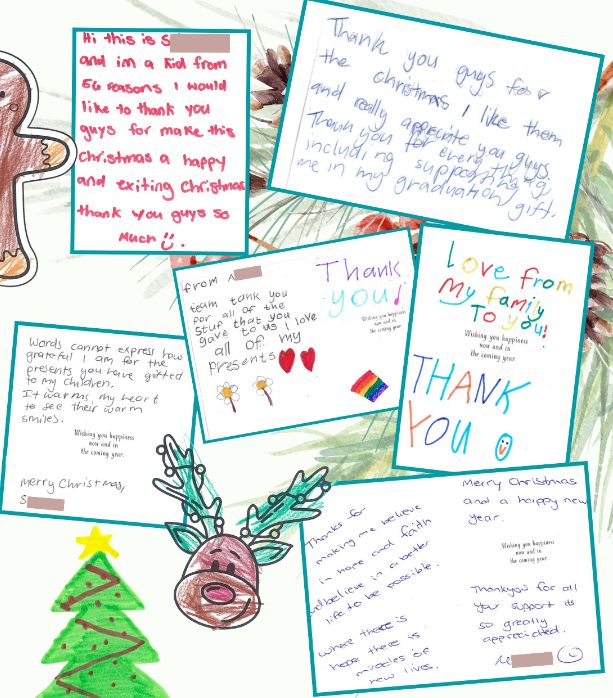 Hi this is S
and im a kid from
56 reasons I would
like to thank you
guys for make this
christmas a happy
and exiting christmas
thank you guys so
much
Thank you guys for
the christmas I like them
and really appreciate you guys.
Thank you for every thing
including supporting
me in my graduation gift.
from
team tank you
for all of the
stuf that you
gave to us I love
all of my
presents
Thank
you!
Wishing you happiness
now and in
the coming year.
Love from
My family
To you!
Wishing you happiness
now and in
the coming year.
THANK
YOU
Words cannot express how
grateful I am for the
presents you have gifted
to my children.
It warms my heart
to see their warm
smiles.
Wishing you happiness
now and in
the coming year.
Merry Christmas,
S
Thanks for
making me believe
in hope and faith
believe in a better
life to be possible.
Where there is
hope there is
miracles of
new lives.
Merry Christmas
and a happy new
year.
Wishing you happiness
now and in
the coming year.
Thankyou for all
your support its
so greatly
appreciated.